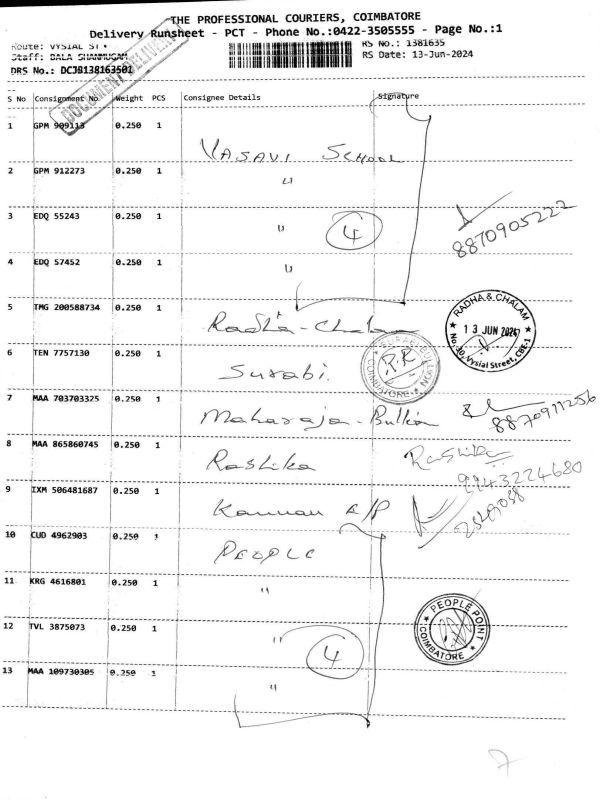 THE PROFESSIONAL COURIERS, COIMBATORE
Delivery Runsheet - PCT - Phone No.:0422-3505555 - Page No.:1
Route: VYSIAL ST
RS No.: 1381635
Staff: BALA SHANMUGAM
RS Date: 13-Jun-2024
DRS No.: DCJB138163501
DOCUMENT DELIVERY
S No Consignment No. Weight PCS Consignee Details Signature
1 GPM 909113 0.250 1 VASAVI SCHOOL
2 GPM 912273 0.250 1 "
3 EDQ 55243 0.250 1 " 4
8870905222
4 EDQ 57452 0.250 1 "
5 TMG 200588734 0.250 1 Radha-Chalam
RADHA & CHALAM
13 JUN 2024
No. 30, Vysial Street, CBE-1
6 TEN 7757130 0.250 1 Surabi
COIMBATORE
7 MAA 703703325 0.250 1 Maharaja-Bullion
8870911256
8 MAA 865860745 0.250 1 Rashika
Rashika
9943224680
9 IXM 506481687 0.250 1 Kannan A/P
10 CUD 4962903 0.250 1 PEOPLE
11 KRG 4616801 0.250 1 "
12 TVL 3875073 0.250 1 " 4
PEOPLE POINT
COIMBATORE
13 MAA 109730305 0.250 1 "
7